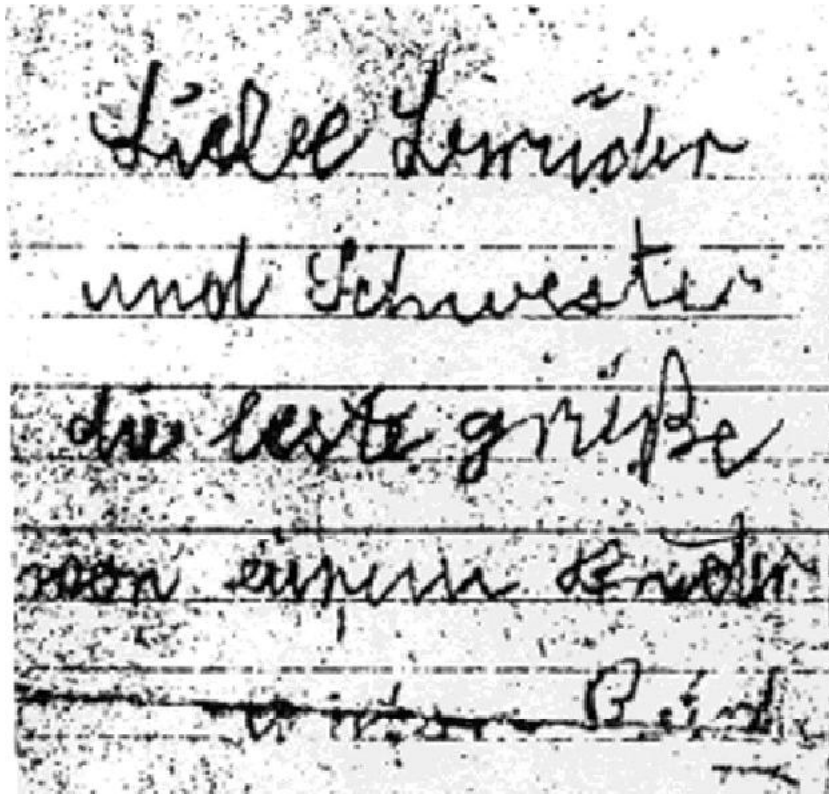 Liebe Lerrüder
und Schwester
die leste grüße
von eurem Bruder